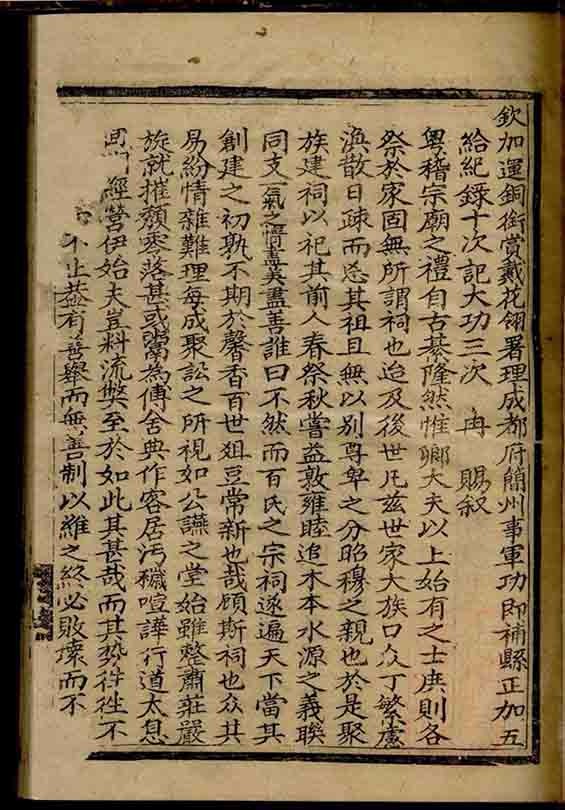 欽加運銅銜賞戴花翎署理成都府簡州事軍功即補縣正加五
給紀錄十次記大功三次 冉 賜叙
粵稽宗廟之禮自古綦隆然惟鄉大夫以上始有之士庶則各
祭於家固無所謂祠也迨及後世凡兹世家大族口众丁繁慮
渙散日疎而忘其祖且無以別尊卑之分昭穆之親也於是聚
族建祠以祀其前人春祭秋嘗益敦雍睦追木本水源之義聮
同支一氣之情盡美盡善誰曰不然而百氏之宗祠遂遍天下當其
創建之初孰不期於馨香百世俎豆常新也哉顧斯祠也众其
易紛情雜難理每成聚訟之所視如公讌之堂始雖整肅莊嚴
旋就摧頹零落甚或當為傳舍典作客居污穢喧譁行道太息
經營伊始夫豈料流獘至於如此其甚哉而其勢徃徃不
不止葢有善舉而無善制以維之終必敗壞而不